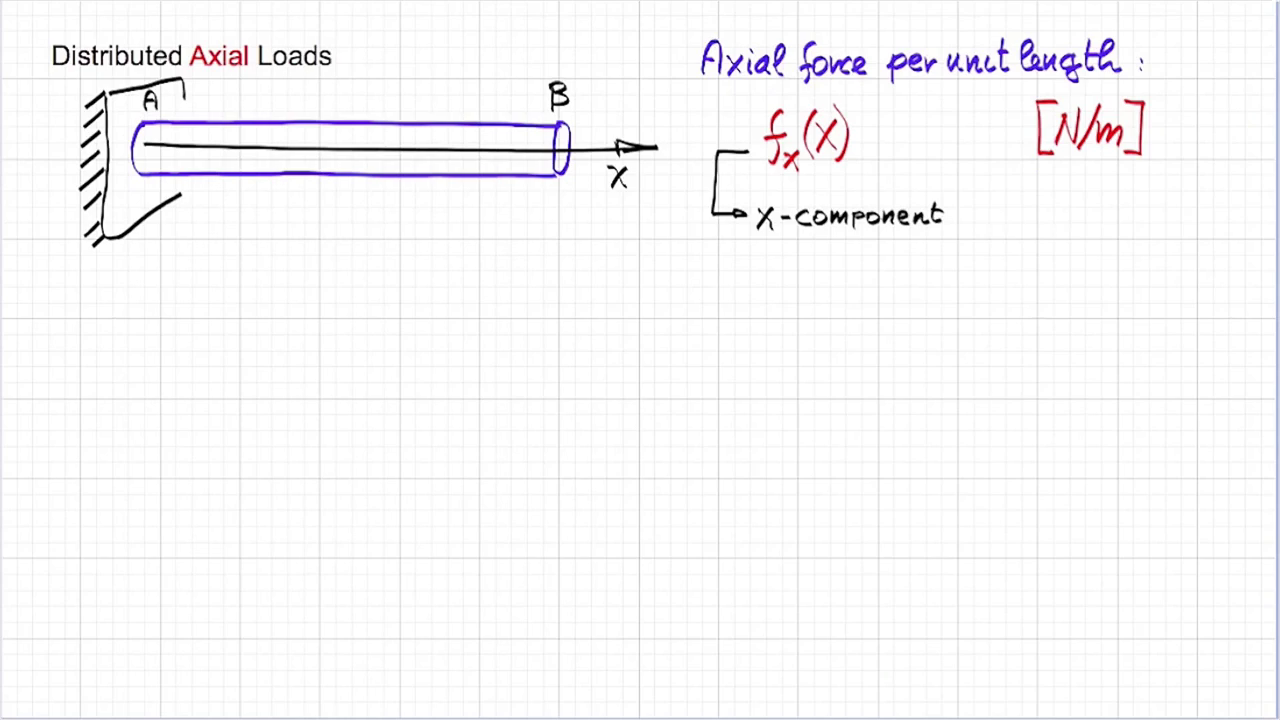 Distributed Axial Loads
Axial force per unit length :
A
B
fₓ(x)
[N/m]
x
x-component